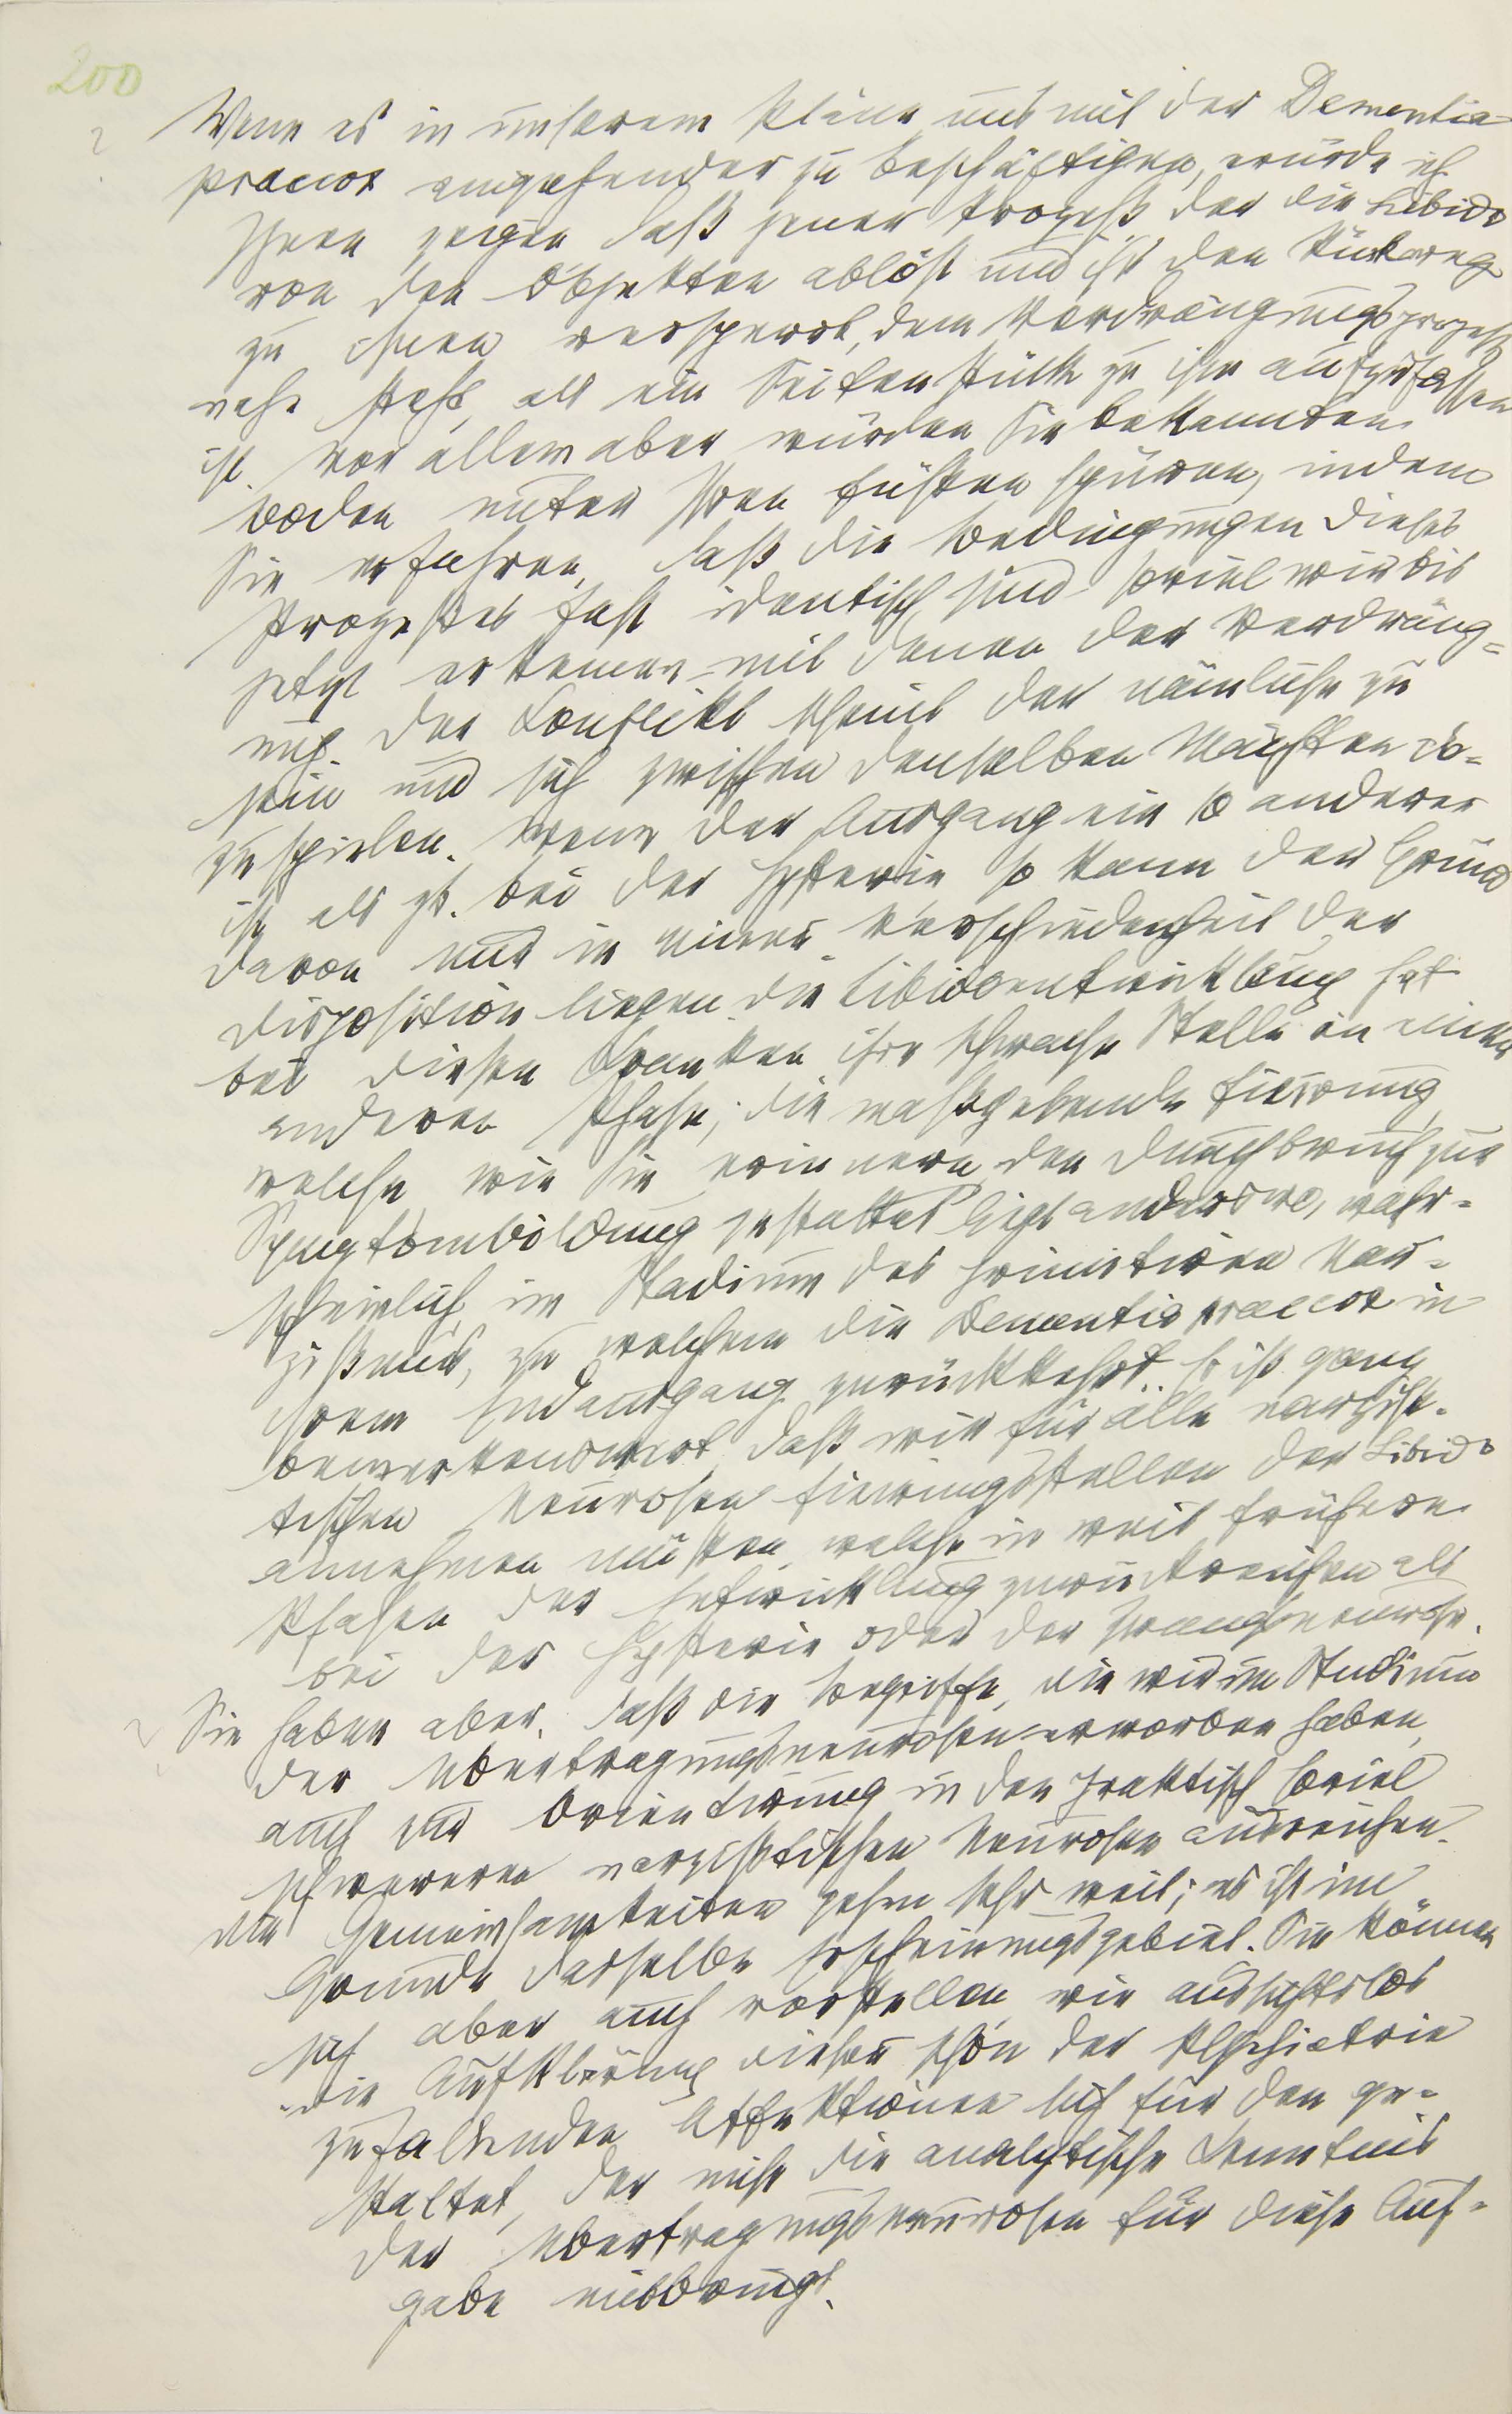 200
Wenn es in unserem Plane uns mit der Dementia
praecox eingehender zu beschäftigen, würde ich
Ihnen zeigen daß jener Prozeß, der die Libido
von den Objekten ablöst und ihr den Rückweg
zu ihnen versperrt, dem Verdrängungsprozeß
nahe steht, als ein Seitenstück zu ihm aufzufassen
ist. Vor allem aber würden Sie bekannten
Boden unter Ihren Füßen spüren, indem
Sie erfahren, daß die Bedingungen dieses
Prozeßes fast identisch sind – soviel wir bis
jetzt erkennen – mit denen der Verdräng=
ung. Der Conflikt scheint der nämliche zu
sein und sich zwischen denselben Mächten ab=
zuspielen. Wenn der Ausgang ein so anderer
ist als zb. bei der Hysterie so kann der Grund
davon nur in einer Verschiedenheit der
Disposition liegen. Die Libidoentwicklung hat
bei diesen Kranken ihre schwache Stelle in einer
anderen Phase; die maßgebende Fixirung,
welche wie Sie erinnern den Durchbruch zur
Symptombildung gestattet liegt anderswo, wahr=
scheinlich im Stadium des primitiven Nar=
zißmus, zu welchem die Dementia praecox in
ihrem Endausgang zurückkehrt. Es ist ganz
bemerkenswert, daß wir für alle narzißt=
ischen Neurosen Fixirungsstellen der Libido
annehmen müßen, welche in weit frühere
Phasen der Entwicklung zurückreichen als
bei der Hysterie oder der Zwangsneurose.
Sie haben aber, daß die Begriffe, die wir im Studium
der Übertragungsneurosen erworben haben,
auch zur Orientirung in den praktisch soviel
schwereren narzißtischen Neurosen ausreichen.
Die Gemeinsamkeiten gehen sehr weit; es ist im
Grunde dasselbe Erscheinungsgebiet. Sie können
sich aber auch vorstellen, wie aussichtslos
die Aufklärung dieser schon der Psychiatrie
zufallenden Affektionen sich für den ge=
staltet, der nicht die analytische Kenntnis
der Übertragungsneurosen für diese Auf=
gabe mitbringt.